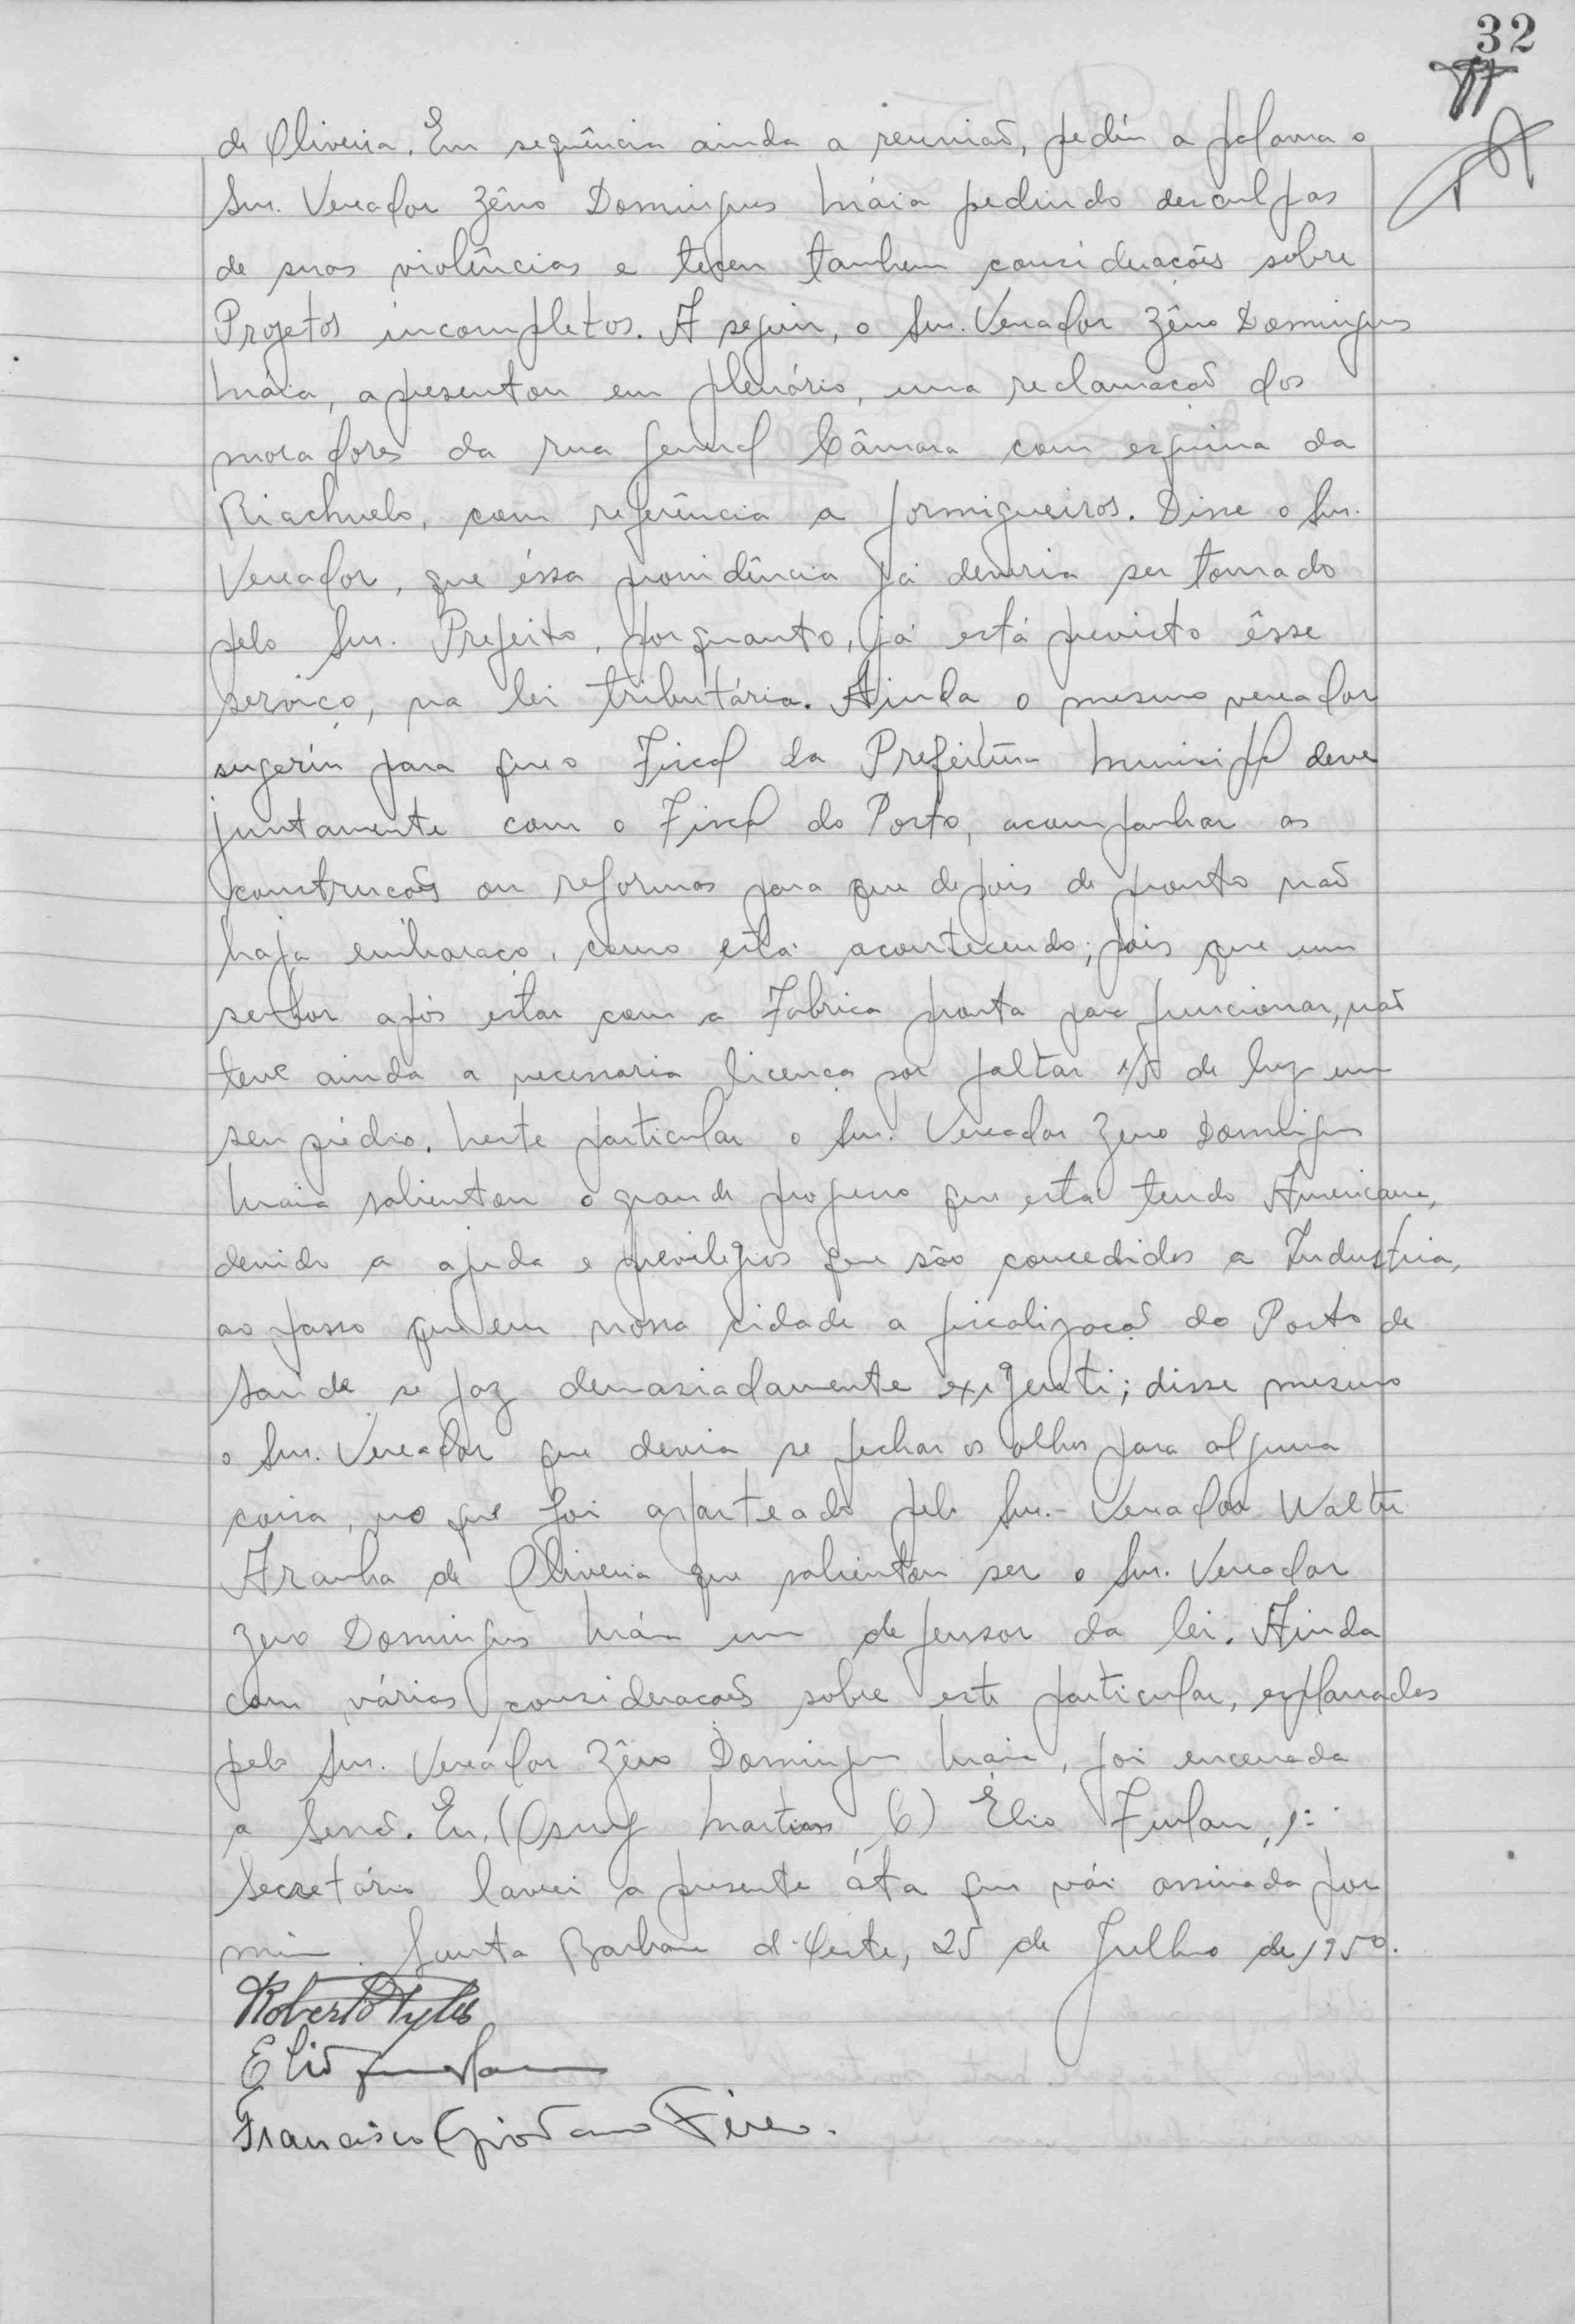 32
de Oliveira. Em sequência ainda a reunião, pediu a palavra o
Snr. Vereador Zêno Domingues Máia pedindo desculpas
de suas violências e teceu tambem considerações sobre
Projetos incompletos. A seguir, o Snr. Vereador Zêno Domingues
Máia, apresentou em plenário, uma reclamação dos
moradores da rua General Câmara com esquina da
Riachuelo, com referência a formigueiros. Disse o Snr.
Vereador, que éssa providência já deveria ser tomado
pelo Snr. Prefeito, porquanto, já está previsto êsse
serviço, na lei tributária. Ainda o mesmo vereador
sugeriu para que o Fiscal da Prefeitura Municipal deve
juntamente com o Fiscal do Posto, acompanhar as
construções ou reformas para que depois de pronto não
haja embaraço, como está acontecendo; pois que um
senhor após estar com a Fabrica pronta para funcionar, não
teve ainda a necessaria licença por faltar 1/5 de luz em
seu prédio. Neste particular o Snr. Vereador Zeno Domingues
Maia salientou o grande progresso que está tendo Americana,
devido a ajuda e previlegios que são concedidos a Industria,
ao passo que em nossa cidade a fiscalização do Posto de
Saude se faz demasiadamente exigente; disse mesmo
o Snr. Vereador que devia se fechar os olhos para alguma
coisa, no que foi aparteado pelo Snr. Vereador Walter
Aranha de Oliveira que salientou ser o Snr. Vereador
Zeno Domingues Máia um defensor da lei. Ainda
com várias considerações sobre este particular, explanadas
pelo Snr. Vereador Zêno Domingues Maia, foi encerrada
a Sessão. Eu, (Osuy Martins C) Élio Furlan, 1º
Secretário lavrei a presente áta que vái assinada por
mim. Santa Barbara d'Oeste, 25 de Julho de 1950.
Roberto
Elio Furlan
Francisco Giordano